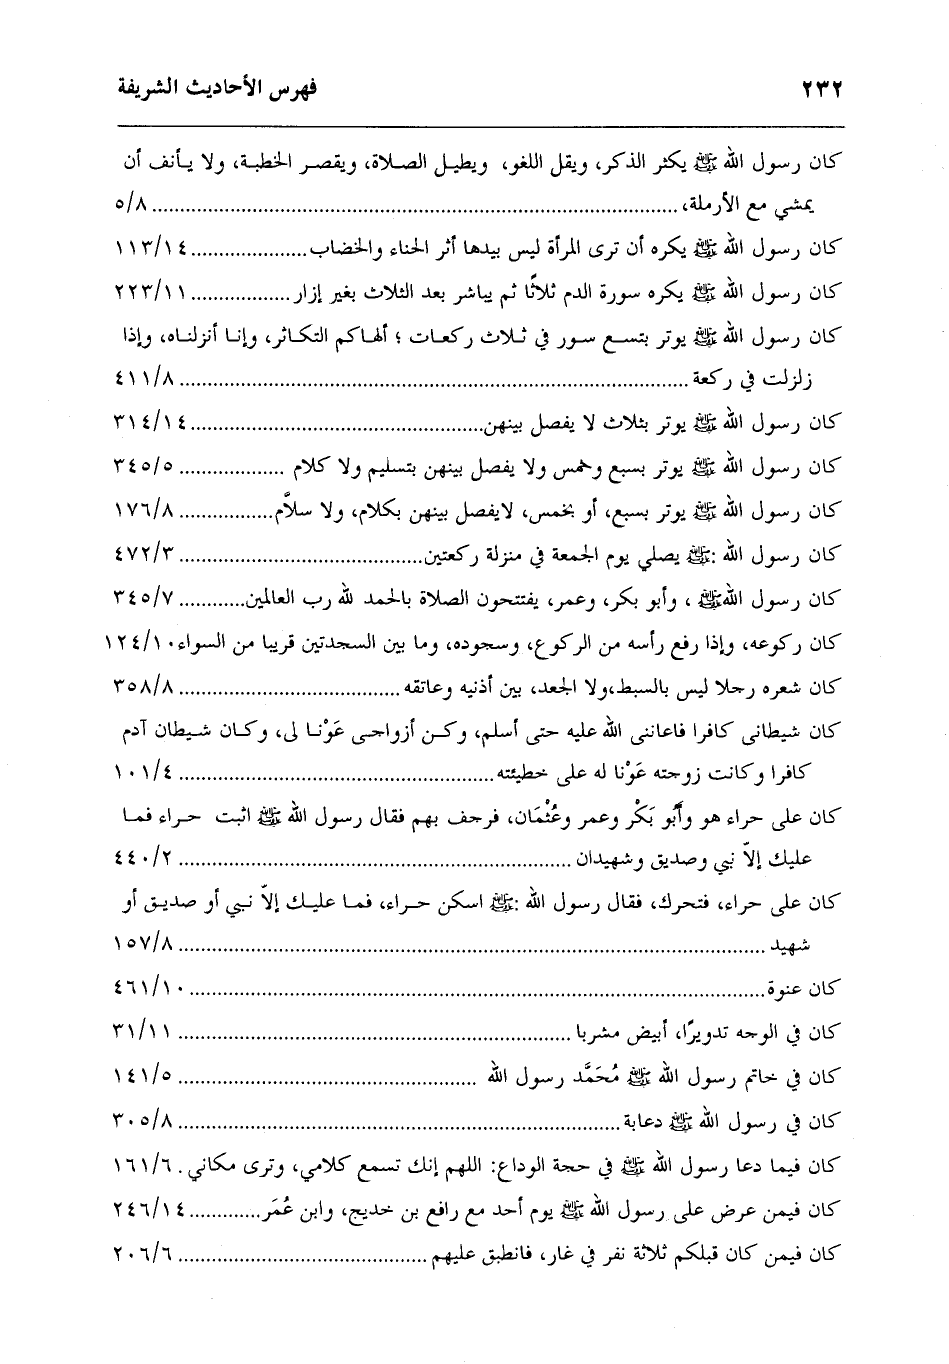 ٢٣٢ فهرس الأحاديث الشريفة
كان رسول الله ﷺ يكثر الذكر، ويقل اللغو، ويطيل الصلاة، ويقصر الخطبة، ولا يأنف أن
يمشي مع الأرملة، ........ ٥/٨
كان رسول الله ﷺ يكره أن ترى المرأة ليس بيدها أثر الحناء والخضاب ........ ١١٣/١٤
كان رسول الله ﷺ يكره سورة الدم ثلاثًا ثم يباشر بعد الثلاث بغير إزار ........ ٢٢٣/١١
كان رسول الله ﷺ يوتر بتسع سور في ثلاث ركعات ؛ ألهاكم التكاثر، وإنا أنزلناه، وإذا
زلزلت في ركعة ........ ٤١١/٨
كان رسول الله ﷺ يوتر بثلاث لا يفصل بينهن ........ ٣١٤/١٤
كان رسول الله ﷺ يوتر بسبع وخمس ولا يفصل بينهن بتسليم ولا كلام ........ ٣٤٥/٥
كان رسول الله ﷺ يوتر بسبع، أو بخمس، لايفصل بينهن بكلام، ولا سلاَّم ........ ١٧٦/٨
كان رسول الله :ﷺ يصلي يوم الجمعة في منزلة ركعتين ........ ٤٧٢/٣
كان رسول اللهﷺ ، وأبو بكر، وعمر، يفتتحون الصلاة بالحمد لله رب العالمين ........ ٣٤٥/٧
كان ركوعه، وإذا رفع رأسه من الركوع، وسجوده، وما بين السجدتين قريبا من السواء ١٢٤/١٠
كان شعره رجلا ليس بالسبط،ولا الجعد، بين أذنيه وعاتقه ........ ٣٥٨/٨
كان شيطانى كافرا فاعاننى الله عليه حتى أسلم، وكن أزواجى عَوْنا لى، وكان شيطان آدم
كافرا وكانت زوجته عَوْنا له على خطيئته ........ ١٠١/٤
كان على حراء هو وأَبُو بَكْر وعمر وعُثْمَان، فرجف بهم فقال رسول الله ﷺ اثبت حراء فما
عليك إلاّ نبي وصديق وشهيدان ........ ٤٤٠/٢
كان على حراء، فتحرك، فقال رسول الله :ﷺ اسكن حراء، فما عليك إلاّ نبي أو صديق أو
شهيد ........ ١٥٧/٨
كان عنوة ........ ٤٦١/١٠
كان في الوجه تدويرًا، أبيض مشربا ........ ٣١/١١
كان في خاتم رسول الله ﷺ مُحَمَّد رسول الله ........ ١٤١/٥
كان في رسول الله ﷺ دعابة ........ ٣٠٥/٨
كان فيما دعا رسول الله ﷺ في حجة الوداع: اللهم إنك تسمع كلامي، وترى مكاني . ١٦١/٦
كان فيمن عرض على رسول الله ﷺ يوم أحد مع رافع بن خديج، وابن عُمَر ........ ٢٤٦/١٤
كان فيمن كان قبلكم ثلاثة نفر في غار، فانطبق عليهم ........ ٢٠٦/٦